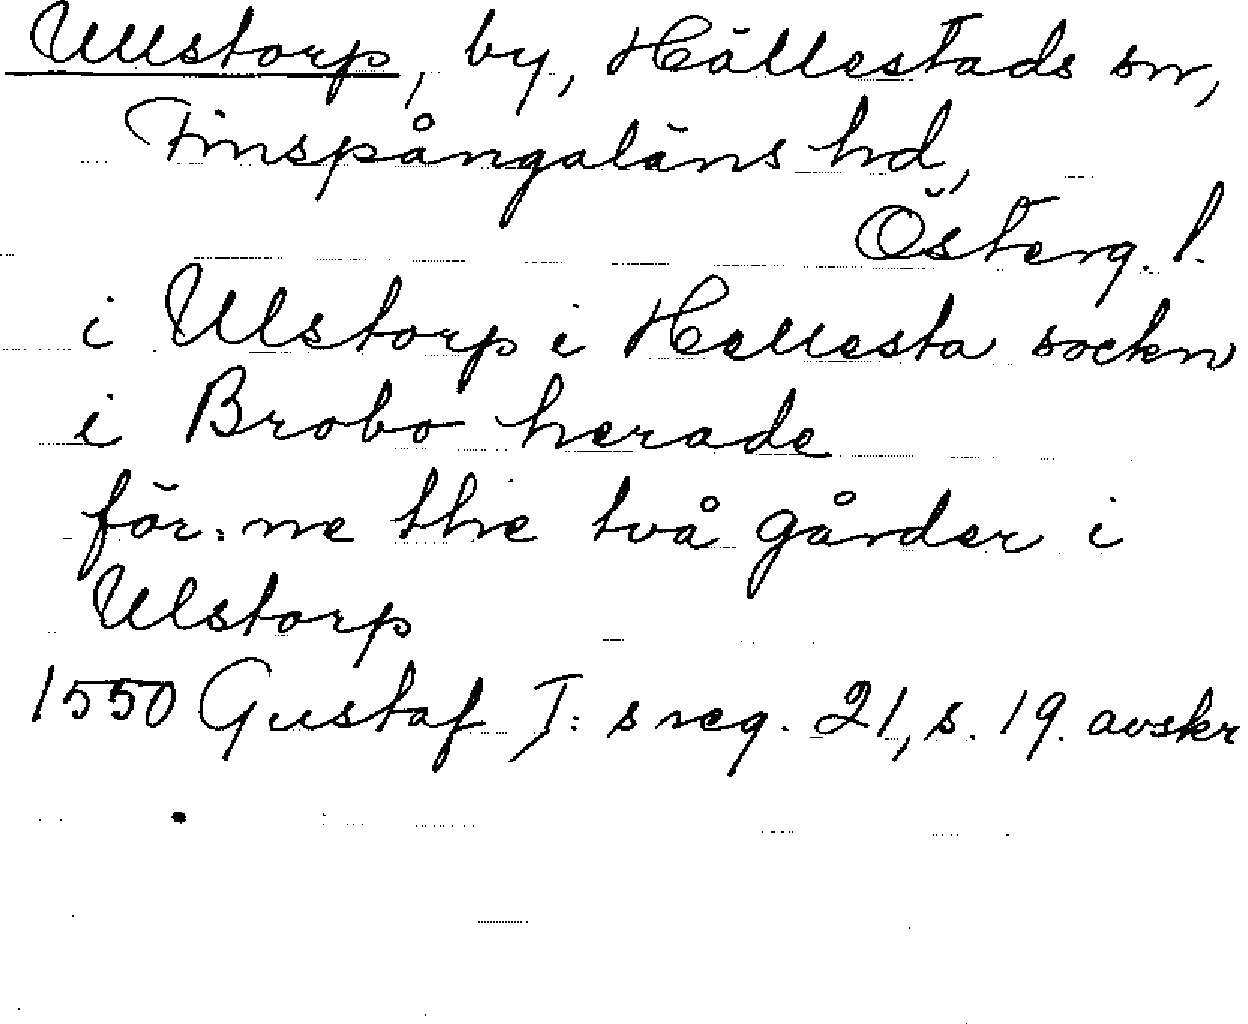 Ullstorp, by, Hällestads sn,
Finspångaläns hd,
Österg. l.
i Ulstorp i Hellesta sockn
i Brobo herade
för:ne the två gårder i
Ulstorp
1550 Gustaf I:s reg. 21, s. 19. avskr